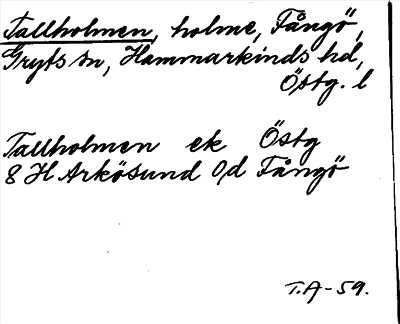 Tallholmen, holme, Fångö,
Gryts sn, Hammarkinds hd,
Östg. l
Tallholmen ek Östg
8 H Arkösund O,d Fångö
T.A-59.